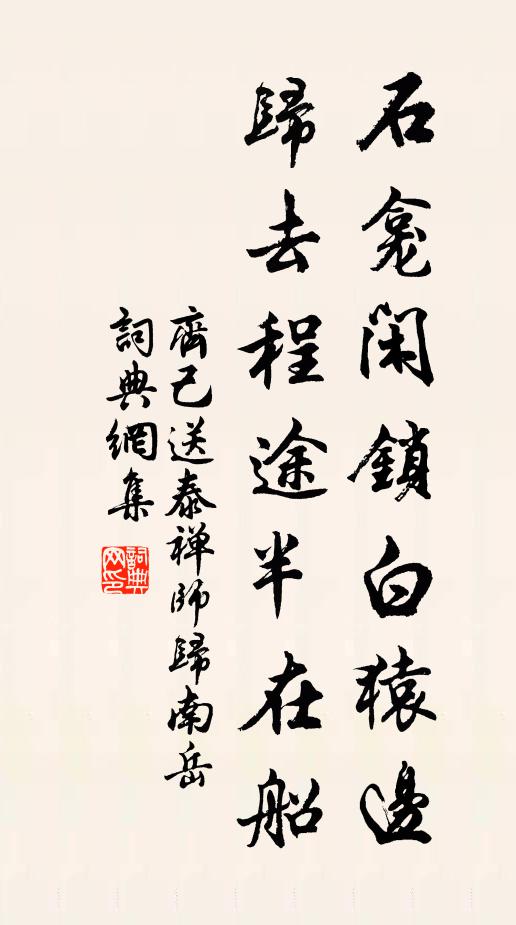 石龕閑鎖白猿邊
歸去程途半在船
齊己送泰禅師歸南岳
詞典網集
詞典网印